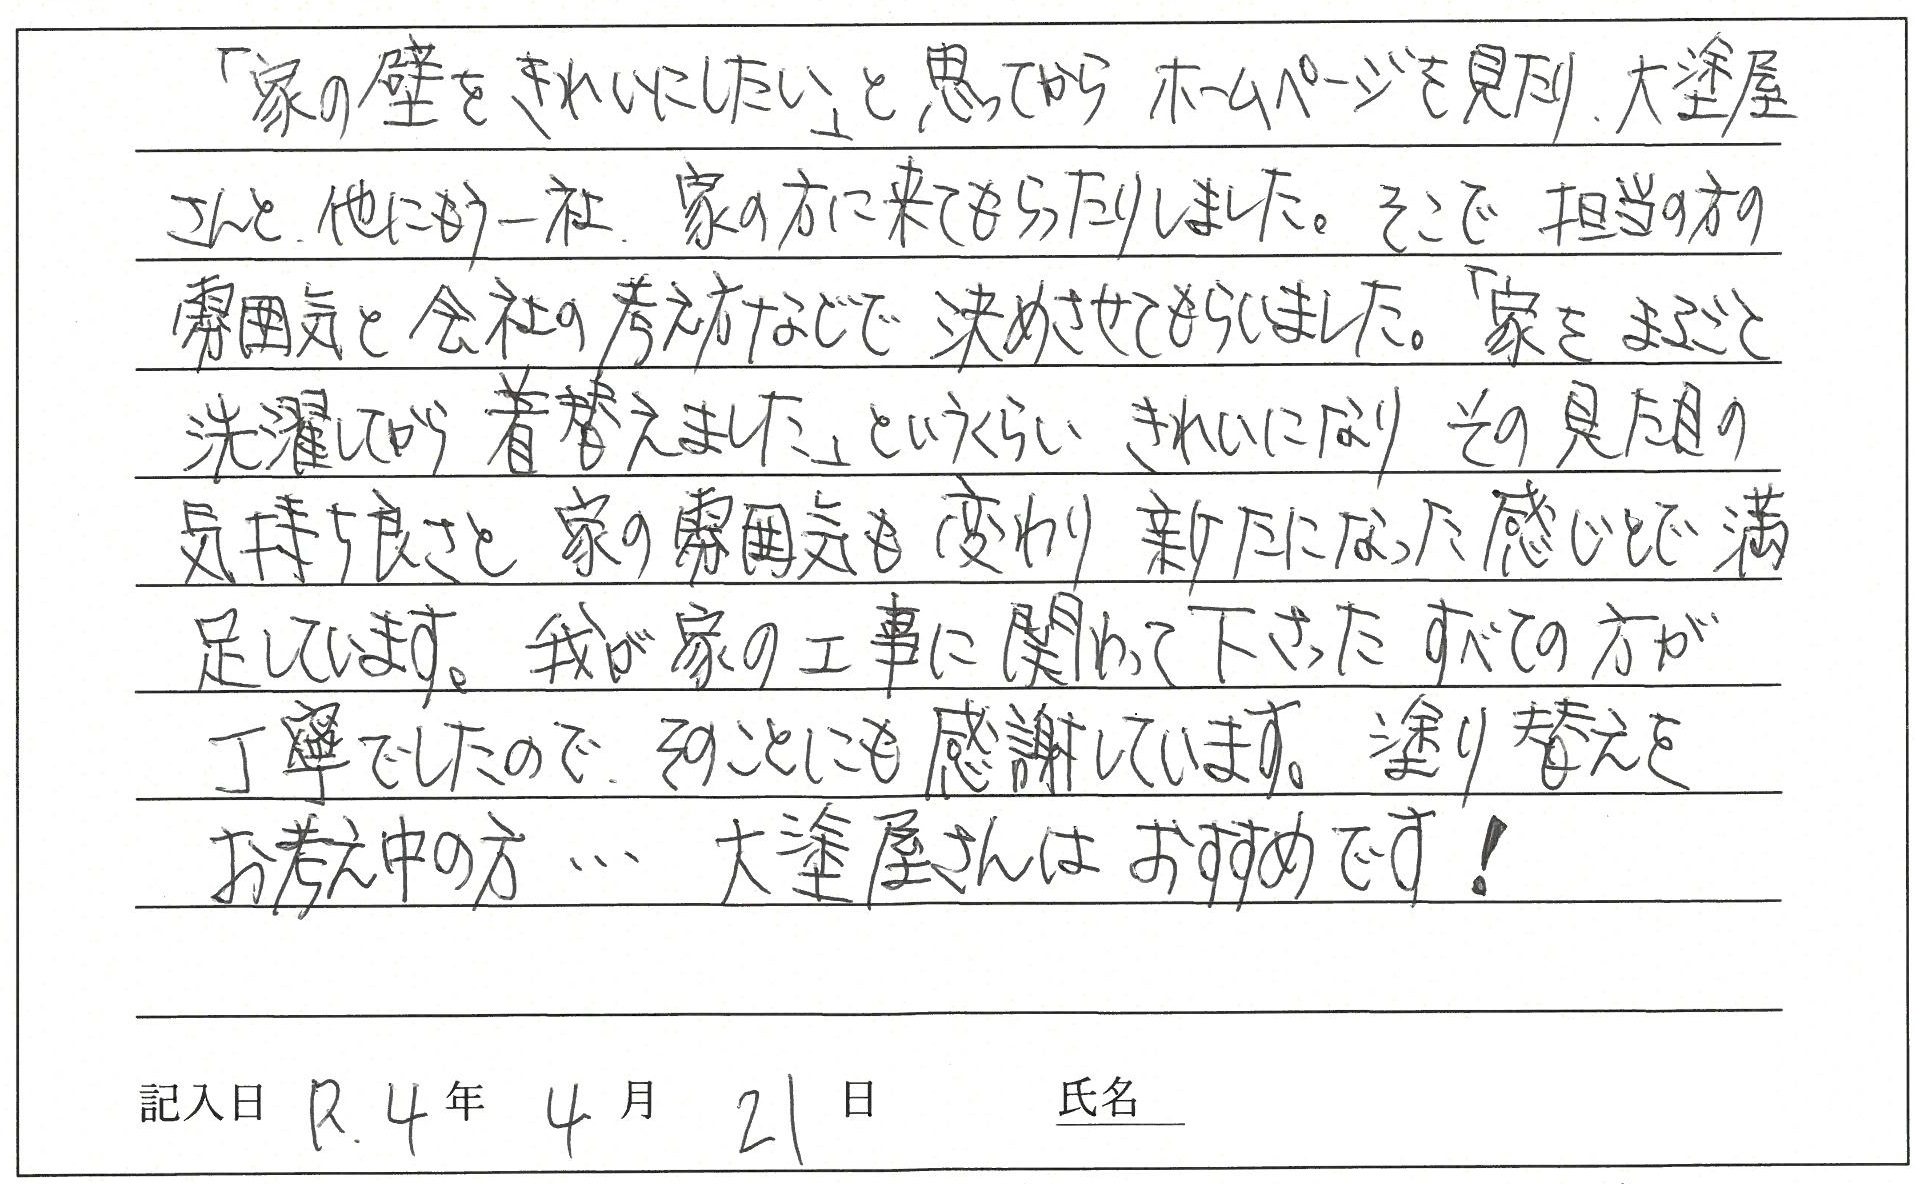 「家の壁をきれいにしたい」と思ってから ホームページを見たり、大塗屋
さんと、他にもう一社、家の方に来てもらったりしました。そこで 担当の方の
雰囲気と会社の考え方などで 決めさせてもらいました。「家を まるごと
洗濯してから 着替えました」というくらい きれいになり その見た目の
気持ち良さと 家の雰囲気も 変わり 新たになった感じとで満
足しています。我が家の工事に関わって下さったすべての方が
丁寧でしたので、そのことにも感謝しています。塗り替えを
お考え中の方… 大塗屋さんは おすすめです！
記入日 R.4年 4月 21日 氏名